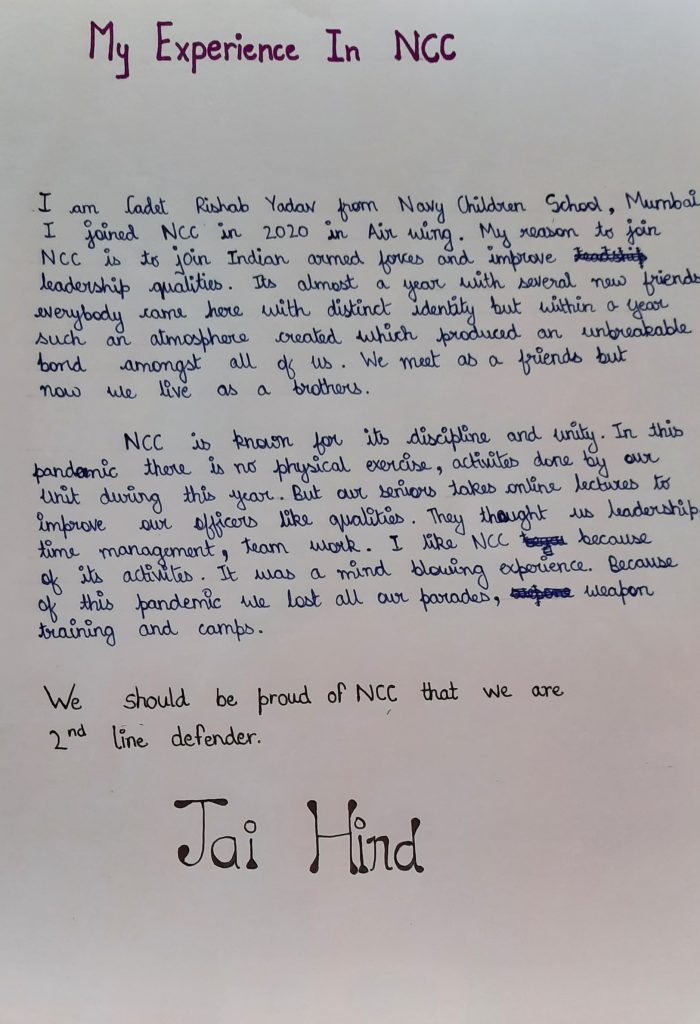 My Experience In NCC
I am Cadet Rishab Yadav from Navy Children School, Mumbai
I joined NCC in 2020 in Air wing. My reason to join
NCC is to join Indian armed forces and improve
leadership qualities. Its almost a year with several new friends
everybody came here with distinct identity but within a year
such an atmosphere created which produced an unbreakable
bond amongst all of us. We meet as a friends but
now we live as a brothers.
NCC is known for its discipline and unity. In this
pandemic there is no physical exercise, activites done by our
Unit during this year. But our seniors takes online lectures to
improve our officers like qualities. They thought us leadership
time management, team work. I like NCC because
of its activites. It was a mind blowing experience. Because
of this pandemic we lost all our parades, weapon
training and camps.
We should be proud of NCC that we are
2nd line defender.
Jai Hind